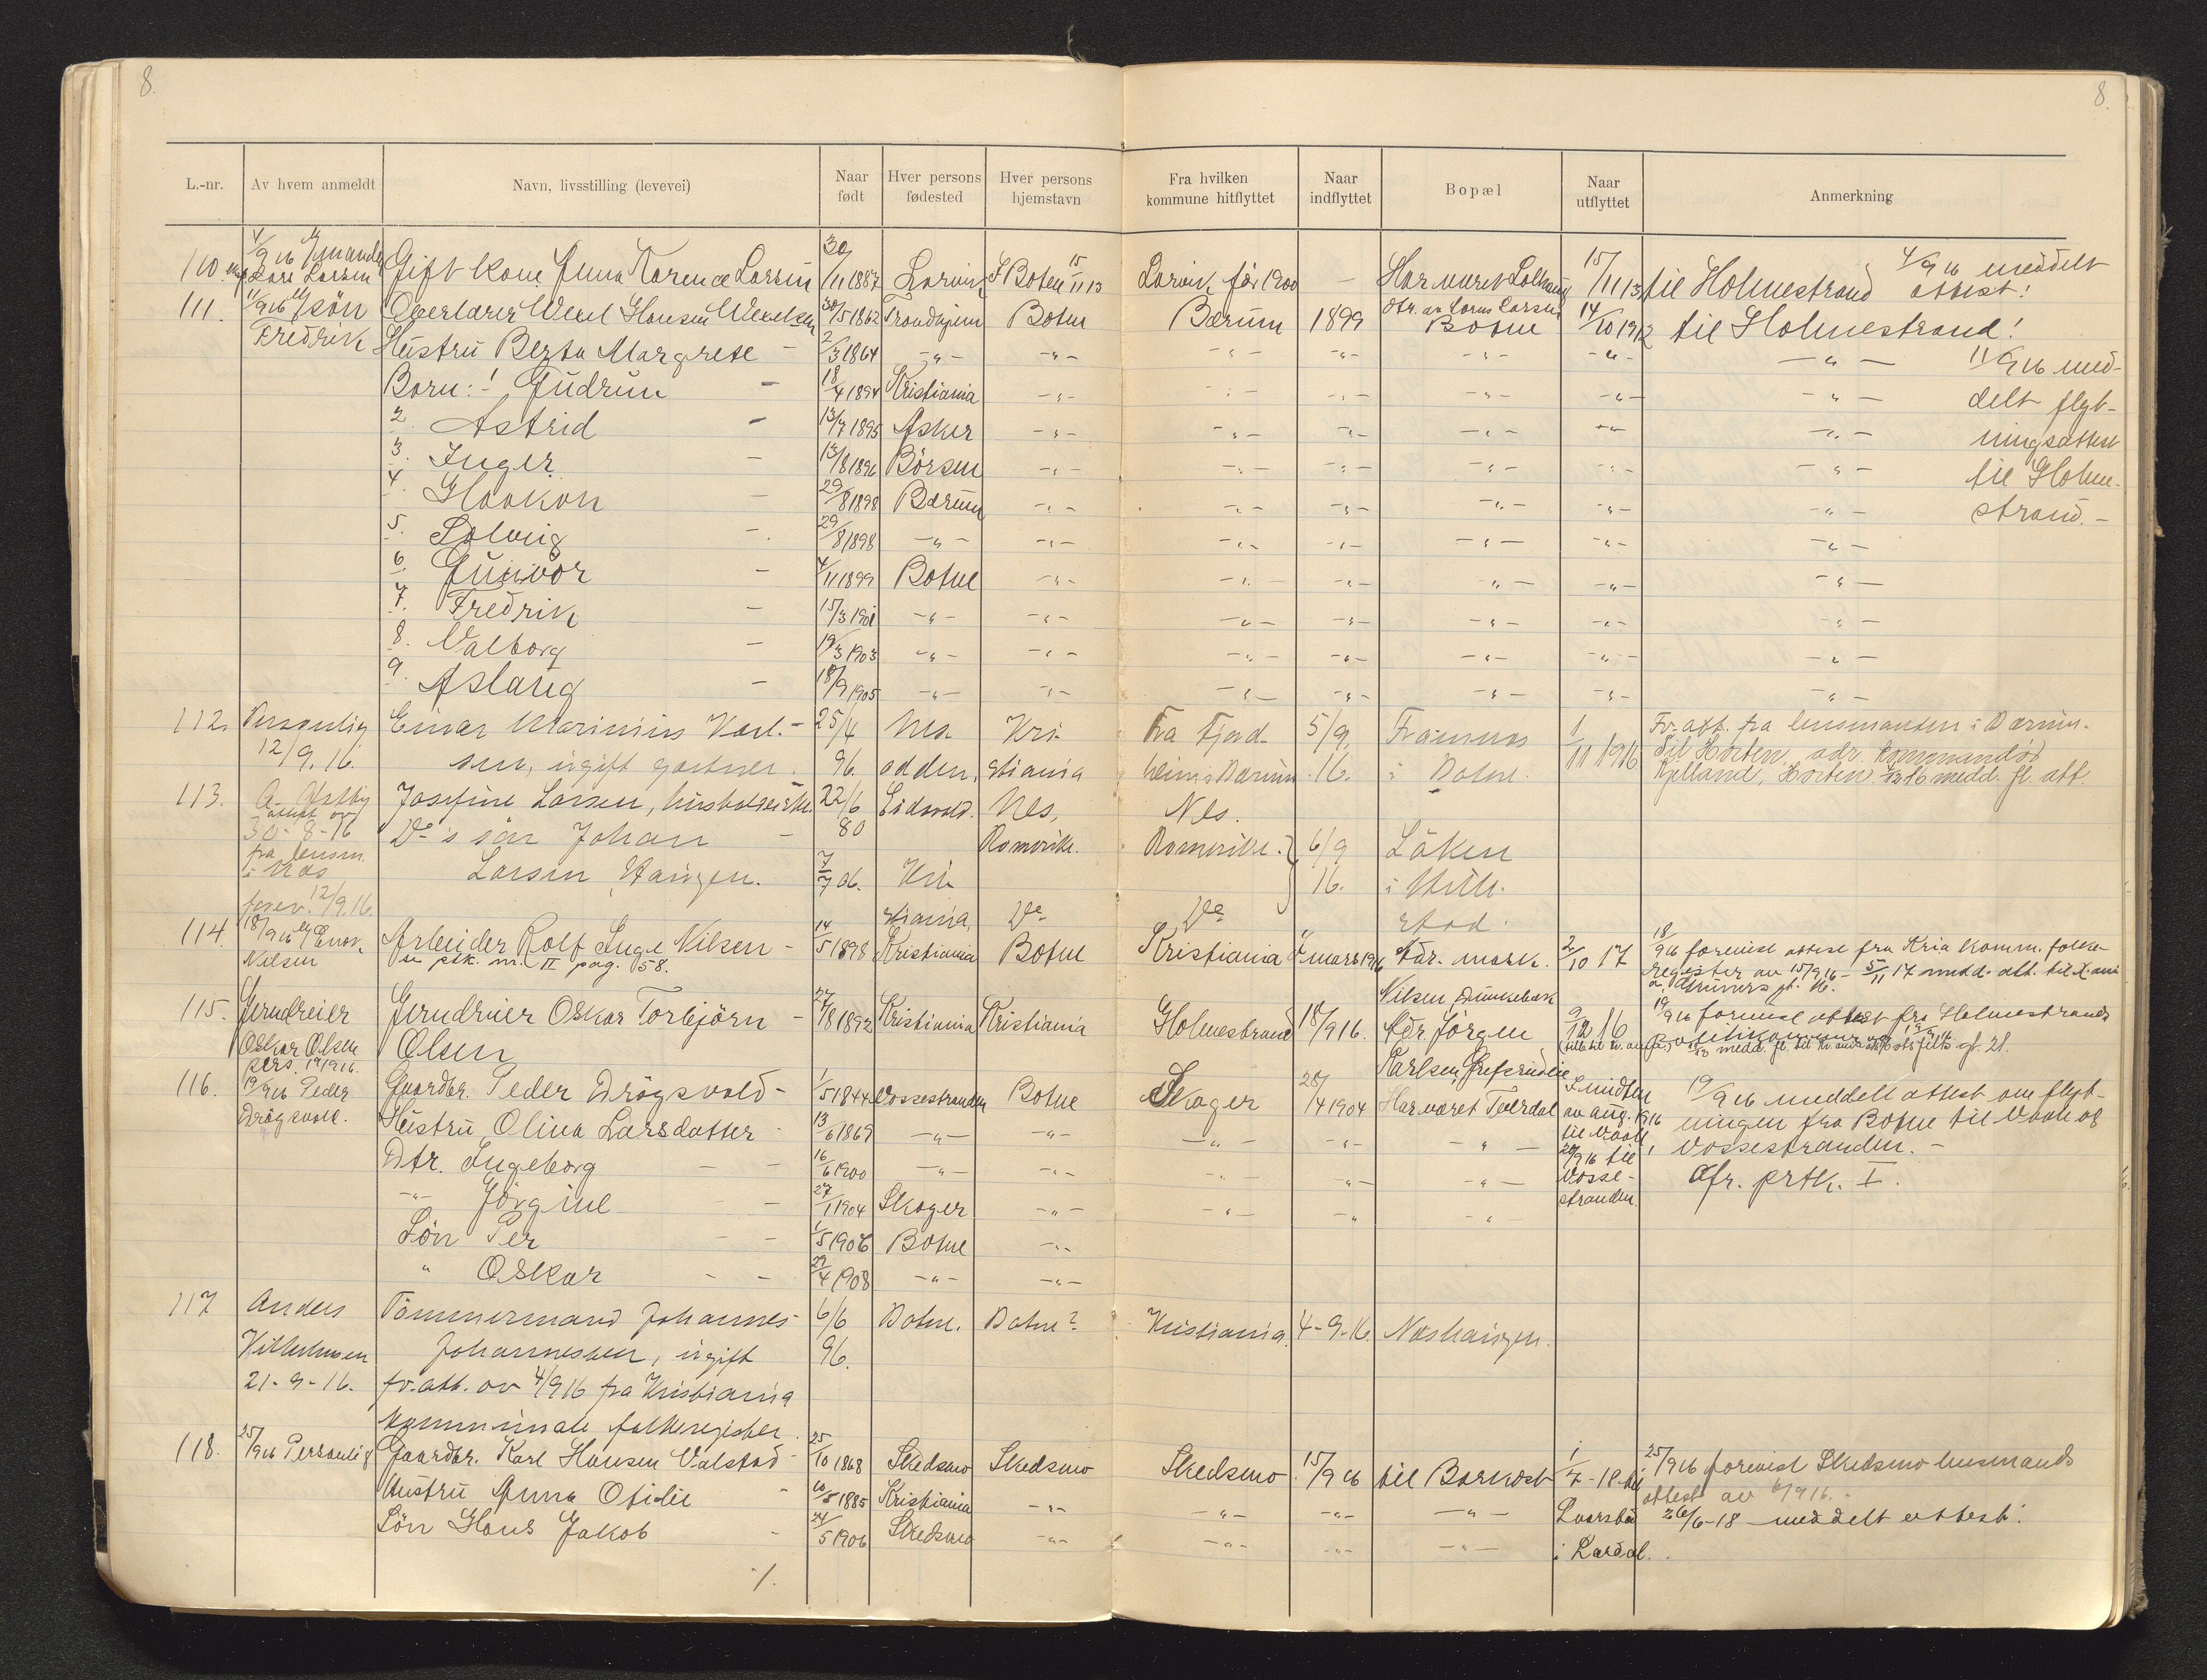 8.
8.
L.-nr. Av hvem anmeldt Navn, livsstilling (levevei) Naar født Hver persons fødested Hver persons hjemstavn Fra hvilken kommune hitflyttet Naar indflyttet Bopæl Naar utflyttet Anmerkning
110. 4/9 16 v/ mand Lars Larsen Gift kone Anna Karense Larsen 30/11 1887 Larvik Botne 15/11 13 Larvik før 1900 — Har været Solhaug 15/11 13 til Holmestrand 4/9 16 meddelt attest!
111. 11/9 16 v/ søn Fredrik Overlærer Wexel Hansen Wexelsen 30/5 1862 Trondhjem Botne Bærum 1899 Botne 14/10 1912 til Holmestrand!
Hustru Berta Margrete — 2/3 1864 —"— —"— —"— —"— —"— —"— —"— 11/9 16 med-
Born: 1 Gudrun — 18/4 1894 Kristiania —"— —"— —"— —"— —"— —"— delt flyt-
2. Astrid — 13/7 1895 Asker —"— —"— —"— —"— —"— —"— ningsattest
3. Inger — 13/8 1896 Børsen —"— —"— —"— —"— —"— —"— til Holme-
4. Haakon — 29/8 1898 Bærum —"— —"— —"— —"— —"— —"— strand. —
5. Solveig — 29/8 1898 —"— —"— —"— —"— —"— —"— —"—
6. Gunvor — 4/11 1899 Botne —"— —"— —"— —"— —"— —"—
7. Fredrik — 15/3 1901 —"— —"— —"— —"— —"— —"— —"—
8. Valborg — 19/3 1903 —"— —"— —"— —"— —"— —"— —"—
9. Aslaug — 18/9 1905 —"— —"— —"— —"— —"— —"— —"—
112. Personlig Einar Marinius Karl- 25/4 Nes Kri- Fra Fjord- 5/9 Framnes 1/11 1916 Fv. att. fra lensmanden i Bærum.
12/9. 16. sen, ugift gartner. 96. odden, stiania heim i Bærum 16. i Botne. til Horten, adr. Kommandør
Kjelland, Horten. medd. fl. att.
113. A. Østby Josefine Larsen, husholderske 22/6 80 Eidsvold. Nes, Romerike. Nes. Romerike. 6/9 16. Løken i Hill-
attest av 30-8-16 fra lensm. i Nes forev. 12/9. 16. Do s søn Johan Larsen Haugen. 7/7 06. Kri- stiania, Do Do stad.
114. 18/9 16 v/ Enok Nilsen Arbeider Rolf Inge Nilsen — 14/5 1898 Kristiania Botne Kristiania mars 1916 Adr. mask. 2/10 17 18/9 16 forevist attest fra Kria komm. folke-
se ptk. nr. II pag. 58. Nilsen register av 15/9 16 — 5/11 17 medd. att. til X.ania
115. Jerndreier Jerndreier Oskar Torbjørn — 27/8 1892 Kristiania Kristiania Holmestrand 18/9 16. Adr. Jørgen 9/12 16 19/9 16 forevist attest fra Holmestrands
Oskar Olsen pers. 19/9 16. Olsen Karlsen,
116. 19/9 16 Peder Drøgsvold. Gaardbr. Peder Drøgsvold — 1/5 1844 Vossestranden Botne Skoger 28/4 1904 Har været Tverdal av aug. 1916 19/9 16 meddelt attest om flyt-
Hustru Olina Larsdatter — 13/6 1869 —"— —"— —"— —"— —"— til Vaale, ningen fra Botne til Vaale og
Dtr. Ingeborg — 16/6 1900 —"— —"— —"— —"— —"— 20/9 16 til Vosse- Vossestranden. —
—"— Jørgine — 27/1 1904 Skoger —"— —"— —"— —"— stranden. Cfr. prtk. I.
Søn Per — 1/5 1906 Botne —"—
" Oskar — 29/4 1908 —"— —"—
117 Anders Tømmermand Johannes 6/6 Botne. Botne? Kristiania 4-9-16. Neshaugen.
Vilhelmsen Johannessen, ugift 96.
21-9-16. fv. att. av 4/9 16 fra Kristiania
kommunale folkeregister.
118. 25/9 16 Personlig Gaardbr. Karl Hansen Valstad — 25/10 1868 Skedsmo Skedsmo Skedsmo 15/9 16 til Barkost 1/7 - 18 til 25/9 16 forevist Skedsmo lensmands
Hustru Anna Otidie — 10/5 1885 Kristiania —"— —"— —"— —"— attest av 6/9 16. —
Søn Hans Jakob — 24/5 1906 Skedsmo —"— —"— —"— —"— i Lardal. 26/6-18 meddelt attest!
./.